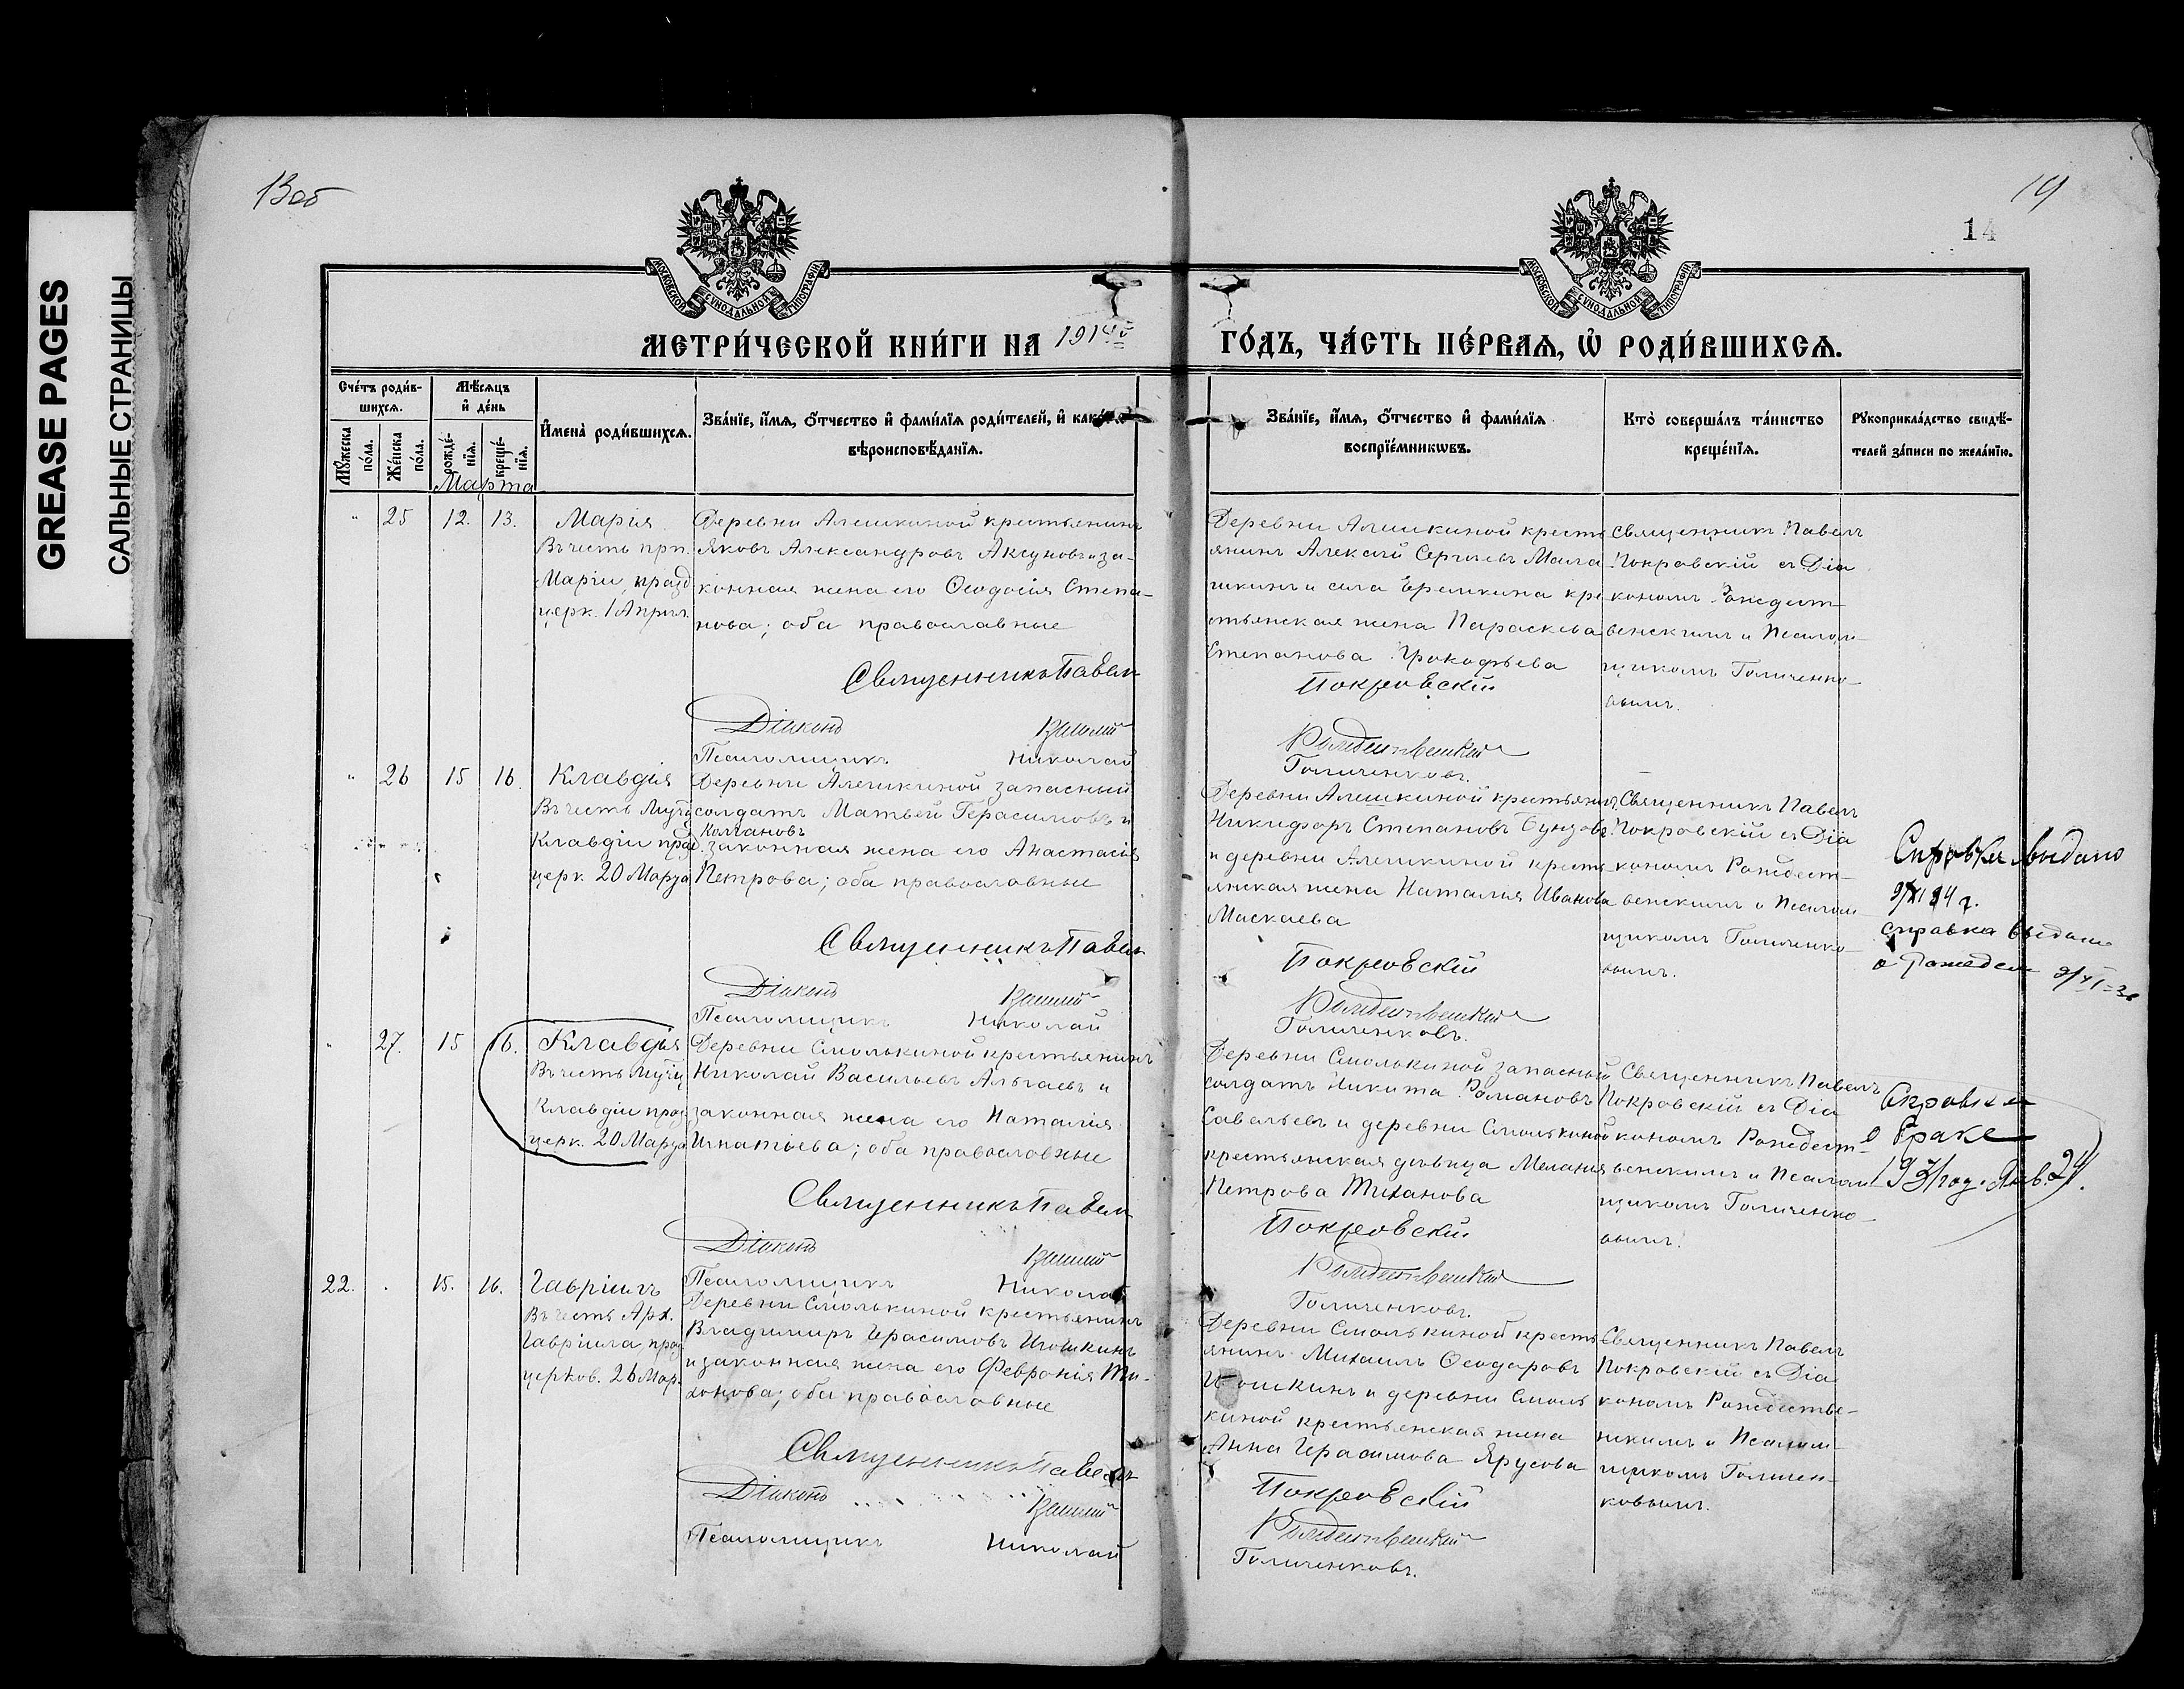 GREASE PAGES
САЛЬНЫЕ СТРАНИЦЫ
13об
14
14
МОСКОВСКОЙ СѴНОДАЛЬНОЙ ТИПОГРАФІИ
МОСКОВСКОЙ СѴНОДАЛЬНОЙ ТИПОГРАФІИ
МЕТРИ́ЧЕСКОЙ КНИ́ГИ НА 1914й
ГО́ДЪ, ЧА́СТЬ ПЕ́РВАѦ, Ѡ҆ РОДИ́ВШИХСѦ.
Сче́тъ роди́вшихсѧ.
Мꙋ́жеска по́ла.
Же́нска по́ла.
Мѣ́сѧцъ и҆ де́нь
рожде́нїѧ.
креще́нїѧ.
И҆мена̀ роди́вшихсѧ.
Зва́нїе, и҆́мѧ, ѻ҆́тчество и҆ фами́лїѧ роди́телей, и҆ како́гѡ
вѣроисповѣ́данїѧ.
Зва́нїе, и҆́мѧ, ѻ҆́тчество и҆ фами́лїѧ
воспрїе́мникѡвъ.
Кто̀ соверша́лъ та́инство
креще́нїѧ.
Рꙋкоприкла́дство свидѣ́телей за́писи по жела́нїю.
Марта
" 25 12. 13.
Марія
Въ честь прп.
Маріи, празд
церк. 1 Апрѣл.
Деревни Алешкиной крестьянинъ
Яковъ Александровъ Аксуновъ и за-
конная жена его Ѳеодосія Степа-
нова; оба православные
Священникъ Павелъ
Діаконъ Василій
Псаломщикъ Николай
Деревни Алешкиной кресть
янинъ Алексѣй Сергѣевъ Мала
шкинъ и села Еремкина кре
стьянская жена Параскева
Степанова Прокофьева
Покровскій
Рождественскій
Голиченковъ.
Священникъ Павелъ
Покровскій съ Діа
кономъ Рождест-
венскимъ и Псалом-
щикомъ Голиченко-
вымъ.
" 26 15 16.
Клавдія
Въ честь Муч.
Клавдіи празд.
церк. 20 Марта
Деревни Алешкиной запасный
солдатъ Матвей Герасимовъ и
Колчановъ
законная жена его Анастасія
Петрова; оба православные
Священникъ Павелъ
Діаконъ Василій
Псаломщикъ Николай
Деревни Алешкиной крестьянинъ
Никифоръ Степановъ Бунзовъ
и деревни Алешкиной кресть
янская жена Наталия Иванова
Маскаева
Покровскій
Рождественскій
Голиченковъ.
Священникъ Павелъ
Покровскій съ Діа
кономъ Рождест-
венскимъ и Псалом-
щикомъ Голиченко-
вымъ.
Справка выдана
справка выдана
о рожден
" 27. 15 16.
Клавдія
Въ честь Муч.
Клавдіи празд
церк. 20 Марта
Деревни Смолькиной крестьянинъ
Николай Васильевъ Альгаевъ и
законная жена его Наталія
Игнатьева; оба православные
Священникъ Павелъ
Діаконъ Василій
Псаломщикъ Николай
Деревни Смолькиной запасный
солдатъ Никита Романовъ
Савельевъ и деревни Смолькиной
крестьянская дѣвица Меланія
Петрова Тиханова
Покровскій
Рождественскій
Голиченковъ.
Священникъ Павелъ
Покровскій съ Діа
кономъ Рождест-
венскимъ и Псалом-
щикомъ Голиченко-
вымъ.
Справка
о браке
1931 год. Янв. 24.
22. . 15. 16.
Гавріилъ
Въ честь Арх.
Гавріила празд
церков. 26 Мар.
Деревни Смолькиной крестьянинъ
Владимиръ Герасимовъ Игошкинъ
и законная жена его Февронія Ти-
хонова; оба православные
Священникъ Павелъ
Діаконъ Василій
Псаломщикъ Николай
Деревни Смолькиной кресть
янинъ Михаилъ Ѳеодоровъ
Игошкинъ и деревни Смоль
киной крестьянская жена
Анна Герасимова Ярусова
Покровскій
Рождественскій
Голиченковъ.
Священникъ Павелъ
Покровскій съ Діа
кономъ Рождестве-
нскимъ и Псалом-
щикомъ Голичен-
ковымъ.